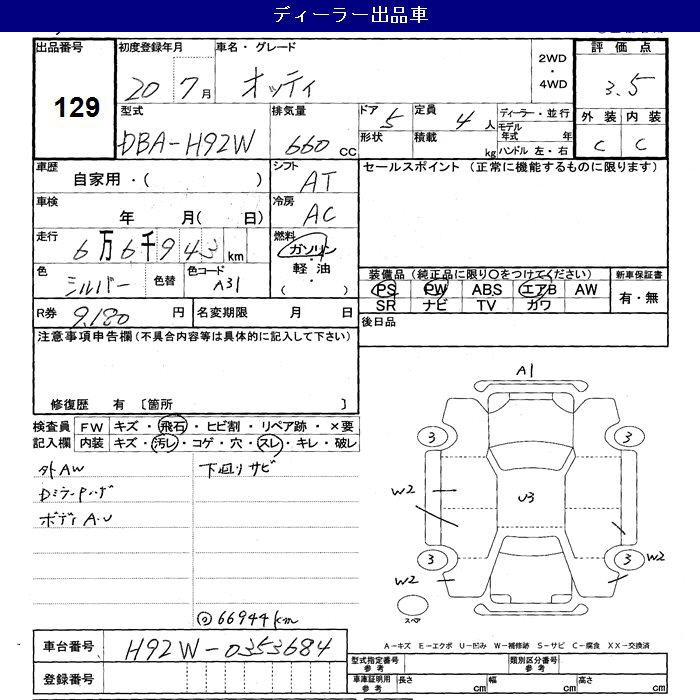 ディーラー出品車
出品番号 初度登録年月 車名・グレード 2WD ・ 4WD 評価点
129 20 7月 オッティ 3.5
型式 排気量 ドア 5 定員 4人 ディーラー・並行 外装 内装
DBA-H92W 660 cc 形状 積載 kg モデル年式 年 C C
ハンドル 左・右
車歴 自家用・( ) シフト AT セールスポイント (正常に機能するものに限ります)
車検 年 月( 日) 冷房 AC
走行 6万6千943 km 燃料 ガソリン・軽油 ( ・ )
色 シルバー 色替 色コード A31
装備品(純正品に限り○をつけてください) 新車保証書
PS PW ABS エアB AW 有・無
SR ナビ TV カワ
R券 9,180 円 名変期限 月 日 後日品
注意事項申告欄(不具合内容等は具体的に記入して下さい)
修復歴 有 〔箇所 〕
検査員 FW キズ・飛石・ヒビ割・リペア跡・×要
記入欄 内装 キズ・汚レ・コゲ・穴・スレ・キレ・破レ
外AW 下回りサビ
ボディA・U
66944km
A1
3 3
W2 U3
3 3 W2
W2
スペア
A-キズ E-エクボ U-凹み W-補修跡 S-サビ C-腐食 XX-交換済
車台番号 H92W-0353684
登録番号
型式指定番号 参考 類別区分番号 参考
車庫証明用 参考 長さ cm 幅 cm 高さ cm